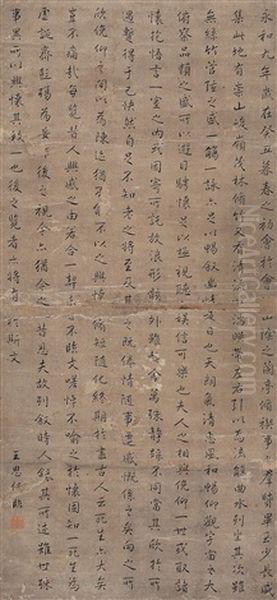 永和九年歲在癸丑暮春之初會於會山陰之蘭脩禊事羣賢畢至少長咸
集此地有崇山峻領茂林脩竹又有清流激湍暎帶左右引以為流觴曲水列坐其次雖
無絲竹管弦之盛一觴一詠亦足以暢敘幽情是日也天朗氣清惠風和暢仰觀宇宙之大
俯察品類之盛所以遊目騁懷足以極視聽娛信可樂也夫人之相與俯仰一世或取諸
懷抱悟言一室之內或因寄所託放浪形骸之外雖趣舍萬殊靜躁不同當其欣於所
遇暫得於己快然自足不知老之將至及其所之既倦情隨事遷感慨係之矣向之所
欣俛仰之間以為陳迹猶不能不以之興懷況脩短隨化終期於盡古人云死生亦大矣
豈不痛哉每覽昔人興感之由若合一契未嘗不臨文嗟悼不能喻之於懷固知一死生為
虛誕齊彭殤為妄作後之視今亦猶今之視昔悲夫故列敘時人錄其所述雖世殊
事異所以興懷其致一也後之覽者亦將有於斯文
王思任臨